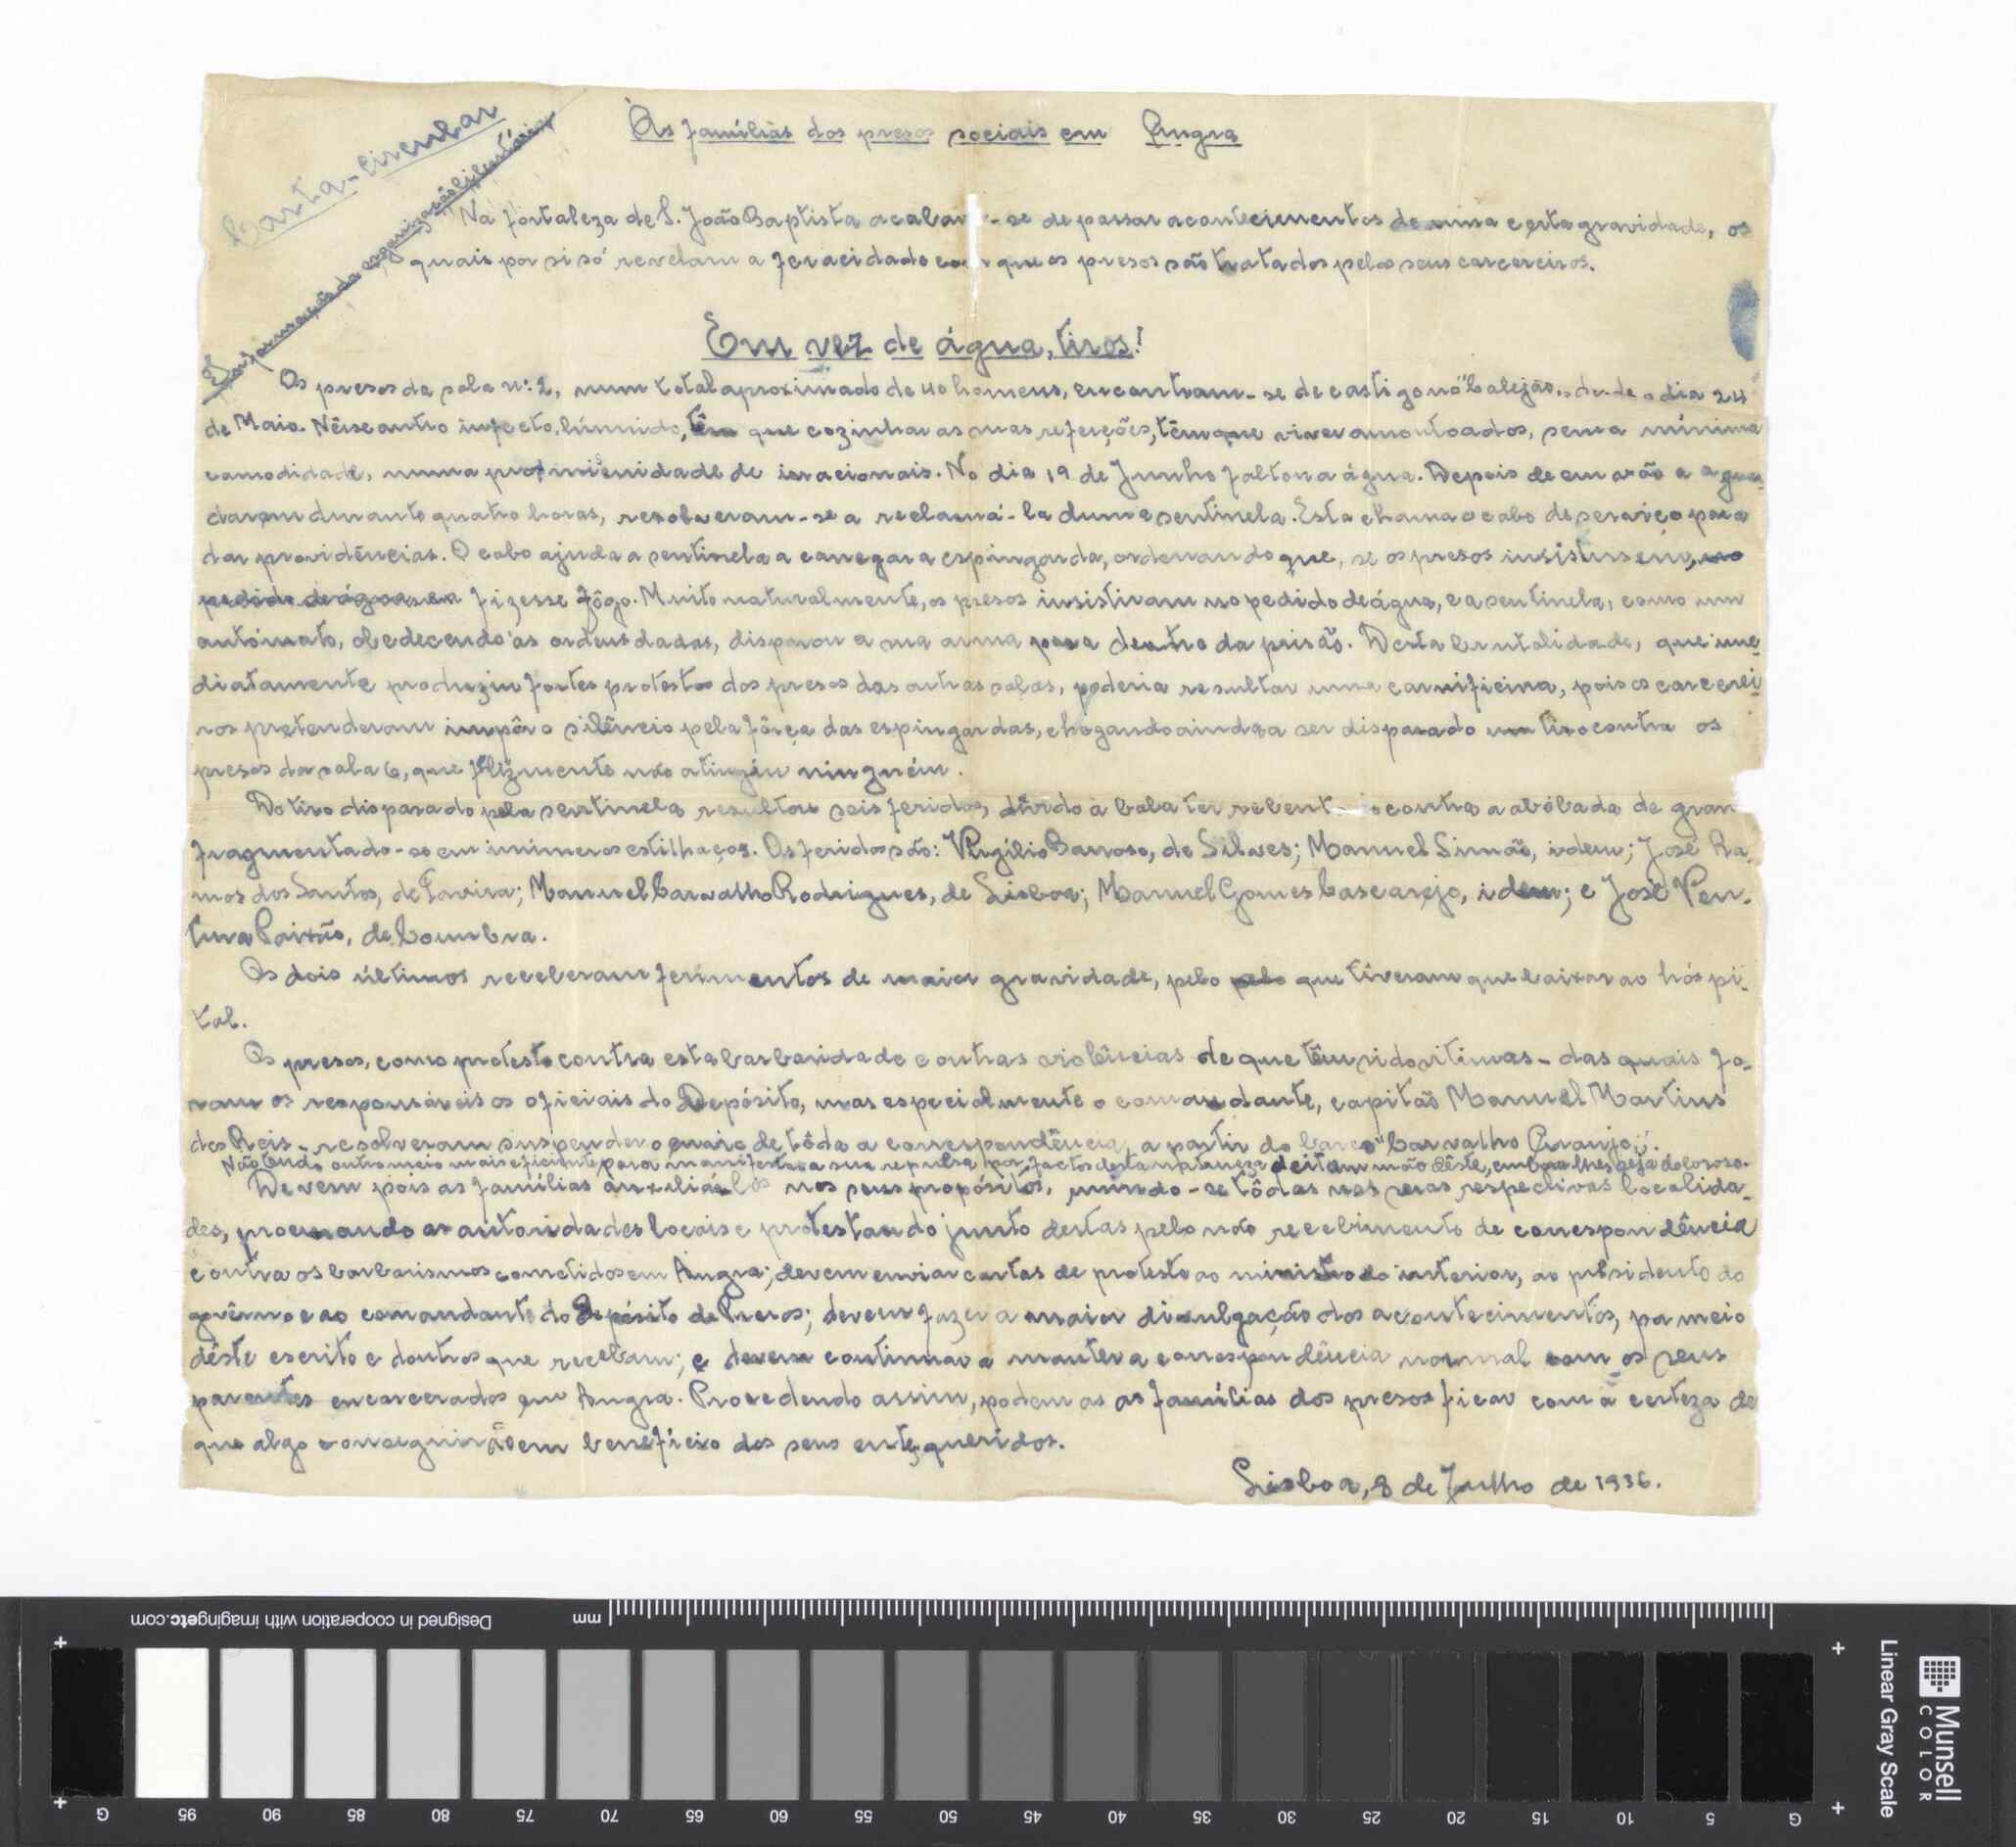 Carta-circular
Às famílias dos presos sociais em Angra
Na fortaleza de S. João Baptista acabam-se de passar acontecimentos de uma certa gravidade, os
quais por si só revelam a feracidade com que os presos são tratados pelos seus carcereiros.
Em vez de água, tiros!
Os presos da sala n.º 2, num total aproximado de 40 homens, encontram-se de castigo no "Calejão", desde o dia 24
de Maio. Nêsse antro infecto, húmido, têm que cozinhar as suas refeições, têm que viver amontoados, sem a mínima
comodidade, numa promiscuidade de irracionais. No dia 19 de Junho faltou a água. Depois de em vão a aguar-
darem durante quatro horas, resolveram-se a reclamá-la duma sentinela. Esta chama o cabo de serviço para
dar providências. O cabo ajuda a sentinela a carregar a espingarda, ordenando que, se os presos insistissem, no
pedido de água, fizesse fôgo. Muito naturalmente, os presos insistiram no pedido de água, e a sentinela, como um
autómato, obedecendo às ordens dadas, disparou a sua arma para dentro da prisão. Desta brutalidade, que ime-
diatamente produziu fortes protestos dos presos das outras salas, poderia resultar uma carnificina, pois os carcerei-
ros pretenderam impôr o silêncio pela fôrça das espingardas, chegando ainda a ser disparado um tiro contra os
presos da sala 6, que felizmente não atingiu ninguém.
Do tiro disparado pela sentinela resultou seis feridos, devido à bala ter rebent o contra a abóbada de gran
fragmentado-se em inúmeros estilhaços. Os feridos são: Virgílio Barroso, de Silves; Manuel Simão, idem; José Ra-
mos dos Santos, de Tavira; Manuel Carvalho Rodrigues, de Lisboa; Manuel Gomes Cascarejo, idem; e José Ven-
tura Paixão, de Coimbra.
Os dois últimos receberam ferimentos de maior gravidade, pelo pelo que tiveram que baixar ao hóspi-
tal.
Os presos, como protesto contra esta barbaridade e outras violências de que têm sido vítimas - das quais fo-
ram os responsáveis os oficiais do Depósito, mas especialmente o comandante, capitão Manuel Martins
dos Reis - resolveram suspender o envio de tôda a correspondência, a partir do barco "Carvalho Araujo".
Não tendo outro meio mais eficiente para manifestar a sua repulsa por factos desta natureza deitam mão dêste, embora lhes seja doloroso.
Devem pois as famílias auxiliá-los nos seus propósitos, unindo-se tôdas nas suas respectivas localida-
des, procurando as autoridades locais e protestando junto destas pelo não recebimento de correspondência
e contra os barbarismos cometidos em Angra; devem enviar cartas de protesto ao ministro do interior, ao presidente do
govêrno e ao comandante do Depósito de Presos; devem fazer a maior divulgação dos acontecimentos, por meio
dêste escrito e doutros que recebam; e devem continuar a manter a correspondência normal com os seus
parentes encarcerados em Angra. Procedendo assim, podem as as famílias dos presos ficar com a certeza de
que algo conseguirão em benefício dos seus entes queridos.
Lisboa, 8 de Julho de 1936.
Designed in cooperation with imagingetc.com
mm
G 95 90 85 80 75 70 65 60 55 50 45 40 35 30 25 20 15 10 5 G
Munsell
COLOR
Linear Gray Scale